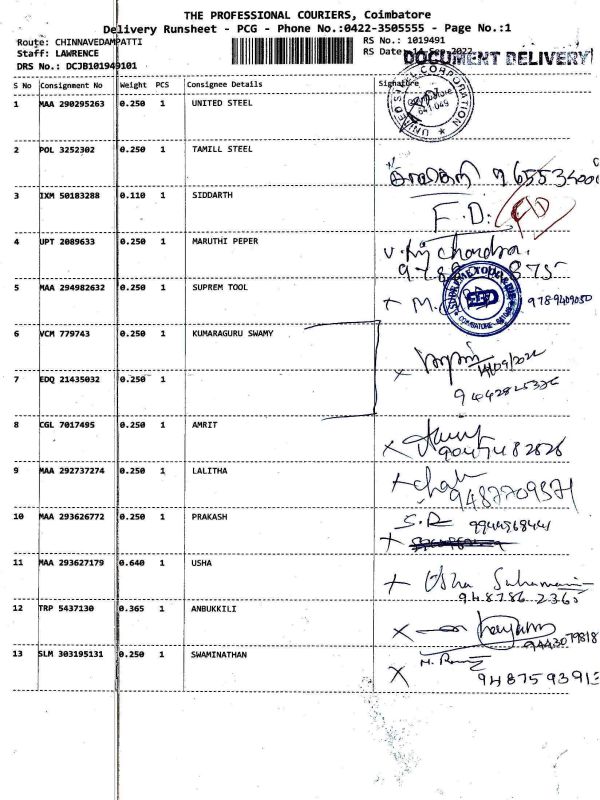 THE PROFESSIONAL COURIERS, Coimbatore
Delivery Runsheet - PCG - Phone No.:0422-3505555 - Page No.:1
Route: CHINNAVEDAMPATTI
RS No.: 1019491
Staff: LAWRENCE
RS Date: 14 Sep 2022
DRS No.: DCJB101949101
DOCUMENT DELIVERY
S No Consignment No Weight PCS Consignee Details Signature
1 MAA 290295263 0.250 1 UNITED STEEL
UNITED STEEL CORPORATION
2 POL 3252302 0.250 1 TAMILL STEEL
3 IXM 50183288 0.110 1 SIDDARTH
F.D.
4 UPT 2089633 0.250 1 MARUTHI PEPER
5 MAA 294982632 0.250 1 SUPREM TOOL
9789409050
6 VCM 779743 0.250 1 KUMARAGURU SWAMY
14/09/2022
7 EDQ 21435032 0.250 1
8 CGL 7017495 0.250 1 AMRIT
9047482826
9 MAA 292737274 0.250 1 LALITHA
9487709571
10 MAA 293626772 0.250 1 PRAKASH
S.R 9944568441
11 MAA 293627179 0.640 1 USHA
Usha
948786 2365
12 TRP 5437130 0.365 1 ANBUKKILI
9443079818
13 SLM 303195131 0.250 1 SWAMINATHAN